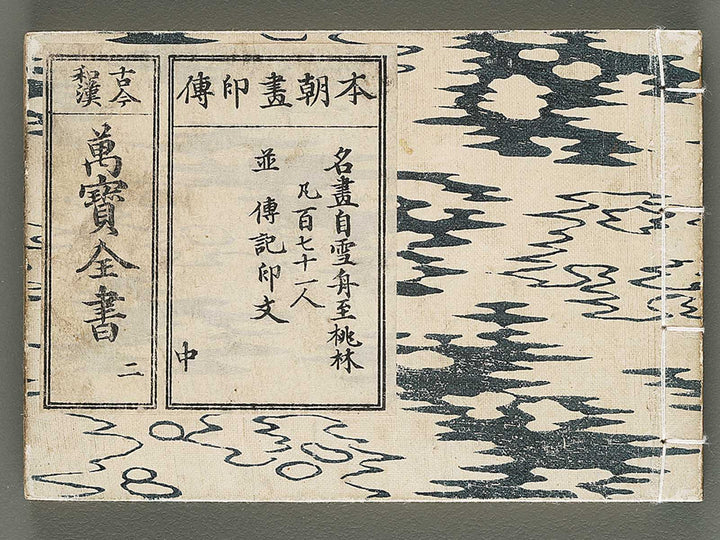 本朝畫印傳
名畫自雪舟至桃林
凡百七十一人
並傳記印文
中
古今
和漢
萬寶全書
二